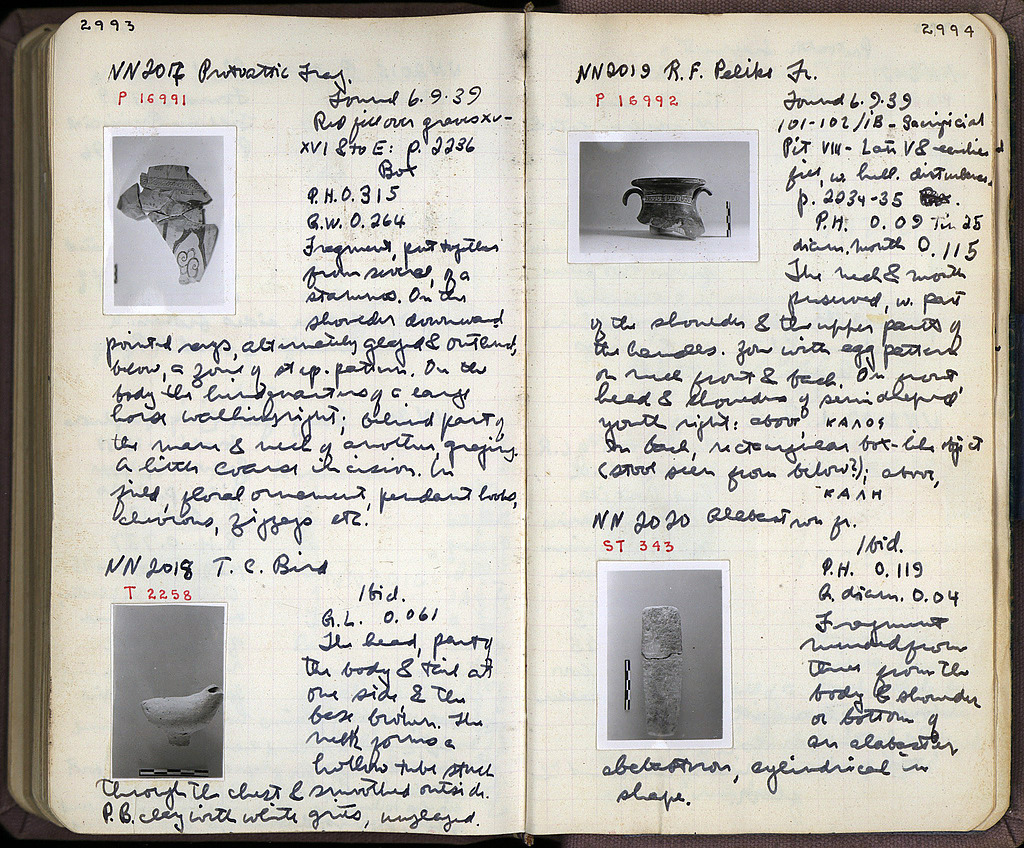 2993
NN2017 Protoattic Frag.
P 16991
Found 6.9.39
Red fill over graves XV-
XVI & to E: p. 2236
Box
P.H. 0.315
G.W. 0.264
Fragment, put together
from several, of a
stamnos. On the
shoulder downward
pointed rays, alternately glazed & outlined,
below, a zone of step-pattern. On the
body the hindquarters of a large
horse walking right; behind part of
the mane & neck of another, grazing.
A little coarse incision. In
field, floral ornament, pendant hooks,
chevrons, zigzags etc.
NN2018 T.C. Bird
T 2258
Ibid.
G.L. 0.061
The head, part of
the body & tail at
one side & the
base broken. The
neck forms a
hollow tube stuck
through the chest & smoothed outside.
P.B. clay with white grits, unglazed.
2994
NN2019 R.F. Pelike Fr.
P 16992
Found 6.9.39
101-102/ΙΒ - Sacrificial
Pit VIII - Late V &
fill, w. hell. disturbance.
p. 2234-35
P.H. 0.09 Tin 25
diam. mouth 0.115
The neck & mouth
preserved, w. part
of the shoulder & the upper parts of
the handles. Zone with egg pattern
on neck front & back. On front,
head & shoulders of semi draped
youth right: above ΚΑΛΟΣ
On back, rectangular box-like object
(stool seen from below?); above,
ΚΑΛΗ
NN 2020 Alabastron fr.
ST 343
Ibid.
P.H. 0.119
G. diam. 0.04
Fragment
mended from
three from the
body & shoulder
or bottom of
an alabaster
alabastron, cylindrical in
shape.